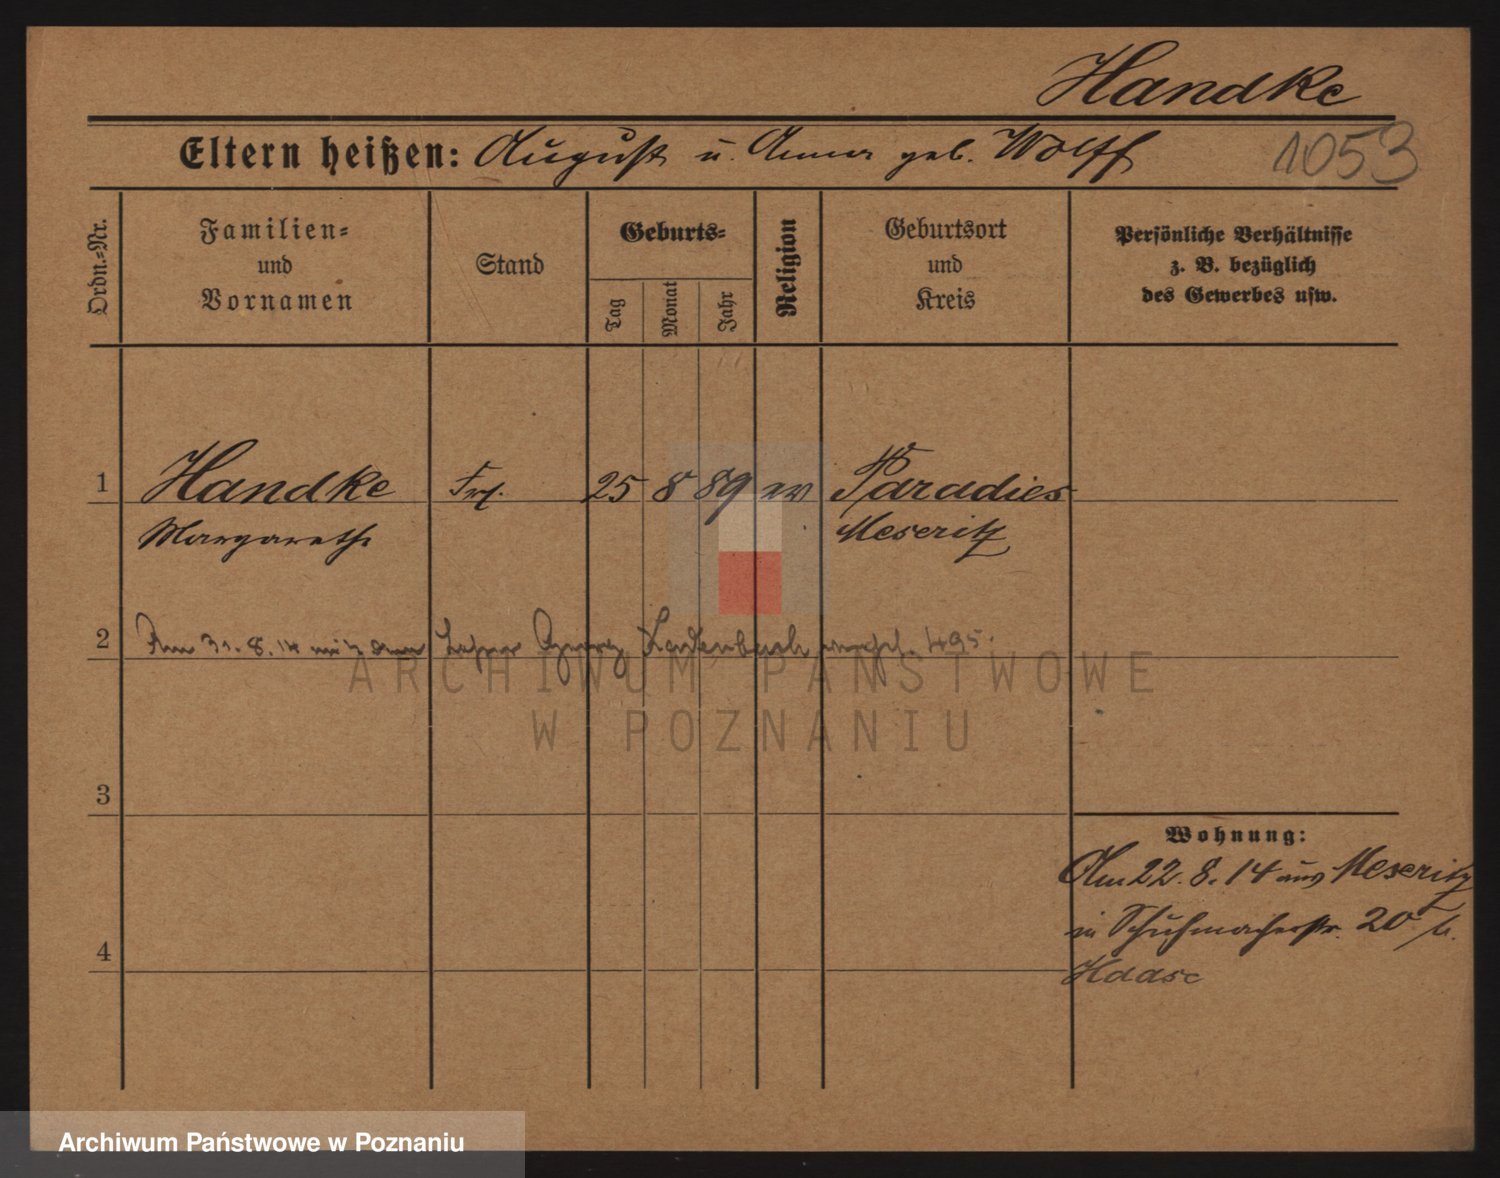 Handke
Eltern heißen: August u. Anna geb. Wolff
1053
Ordn.-Nr.
Familien-
und
Vornamen
Stand
Geburts-
Tag
Monat
Jahr
Religion
Geburtsort
und
Kreis
Persönliche Verhältnisse
z. B. bezüglich
des Gewerbes usw.
1 Handke Frl. 25 8 89 ev Paradies
Margarethe Meseritz
2 Am 31. 8. 14 mit dem Lehrer Georg verehel. 495.
ARCHIWUM PAŃSTWOWE
W POZNANIU
3
Wohnung:
Am 22. 8. 14 aus Meseritz
in Schuhmacherstr. 20 b.
Haase
4
Archiwum Państwowe w Poznaniu